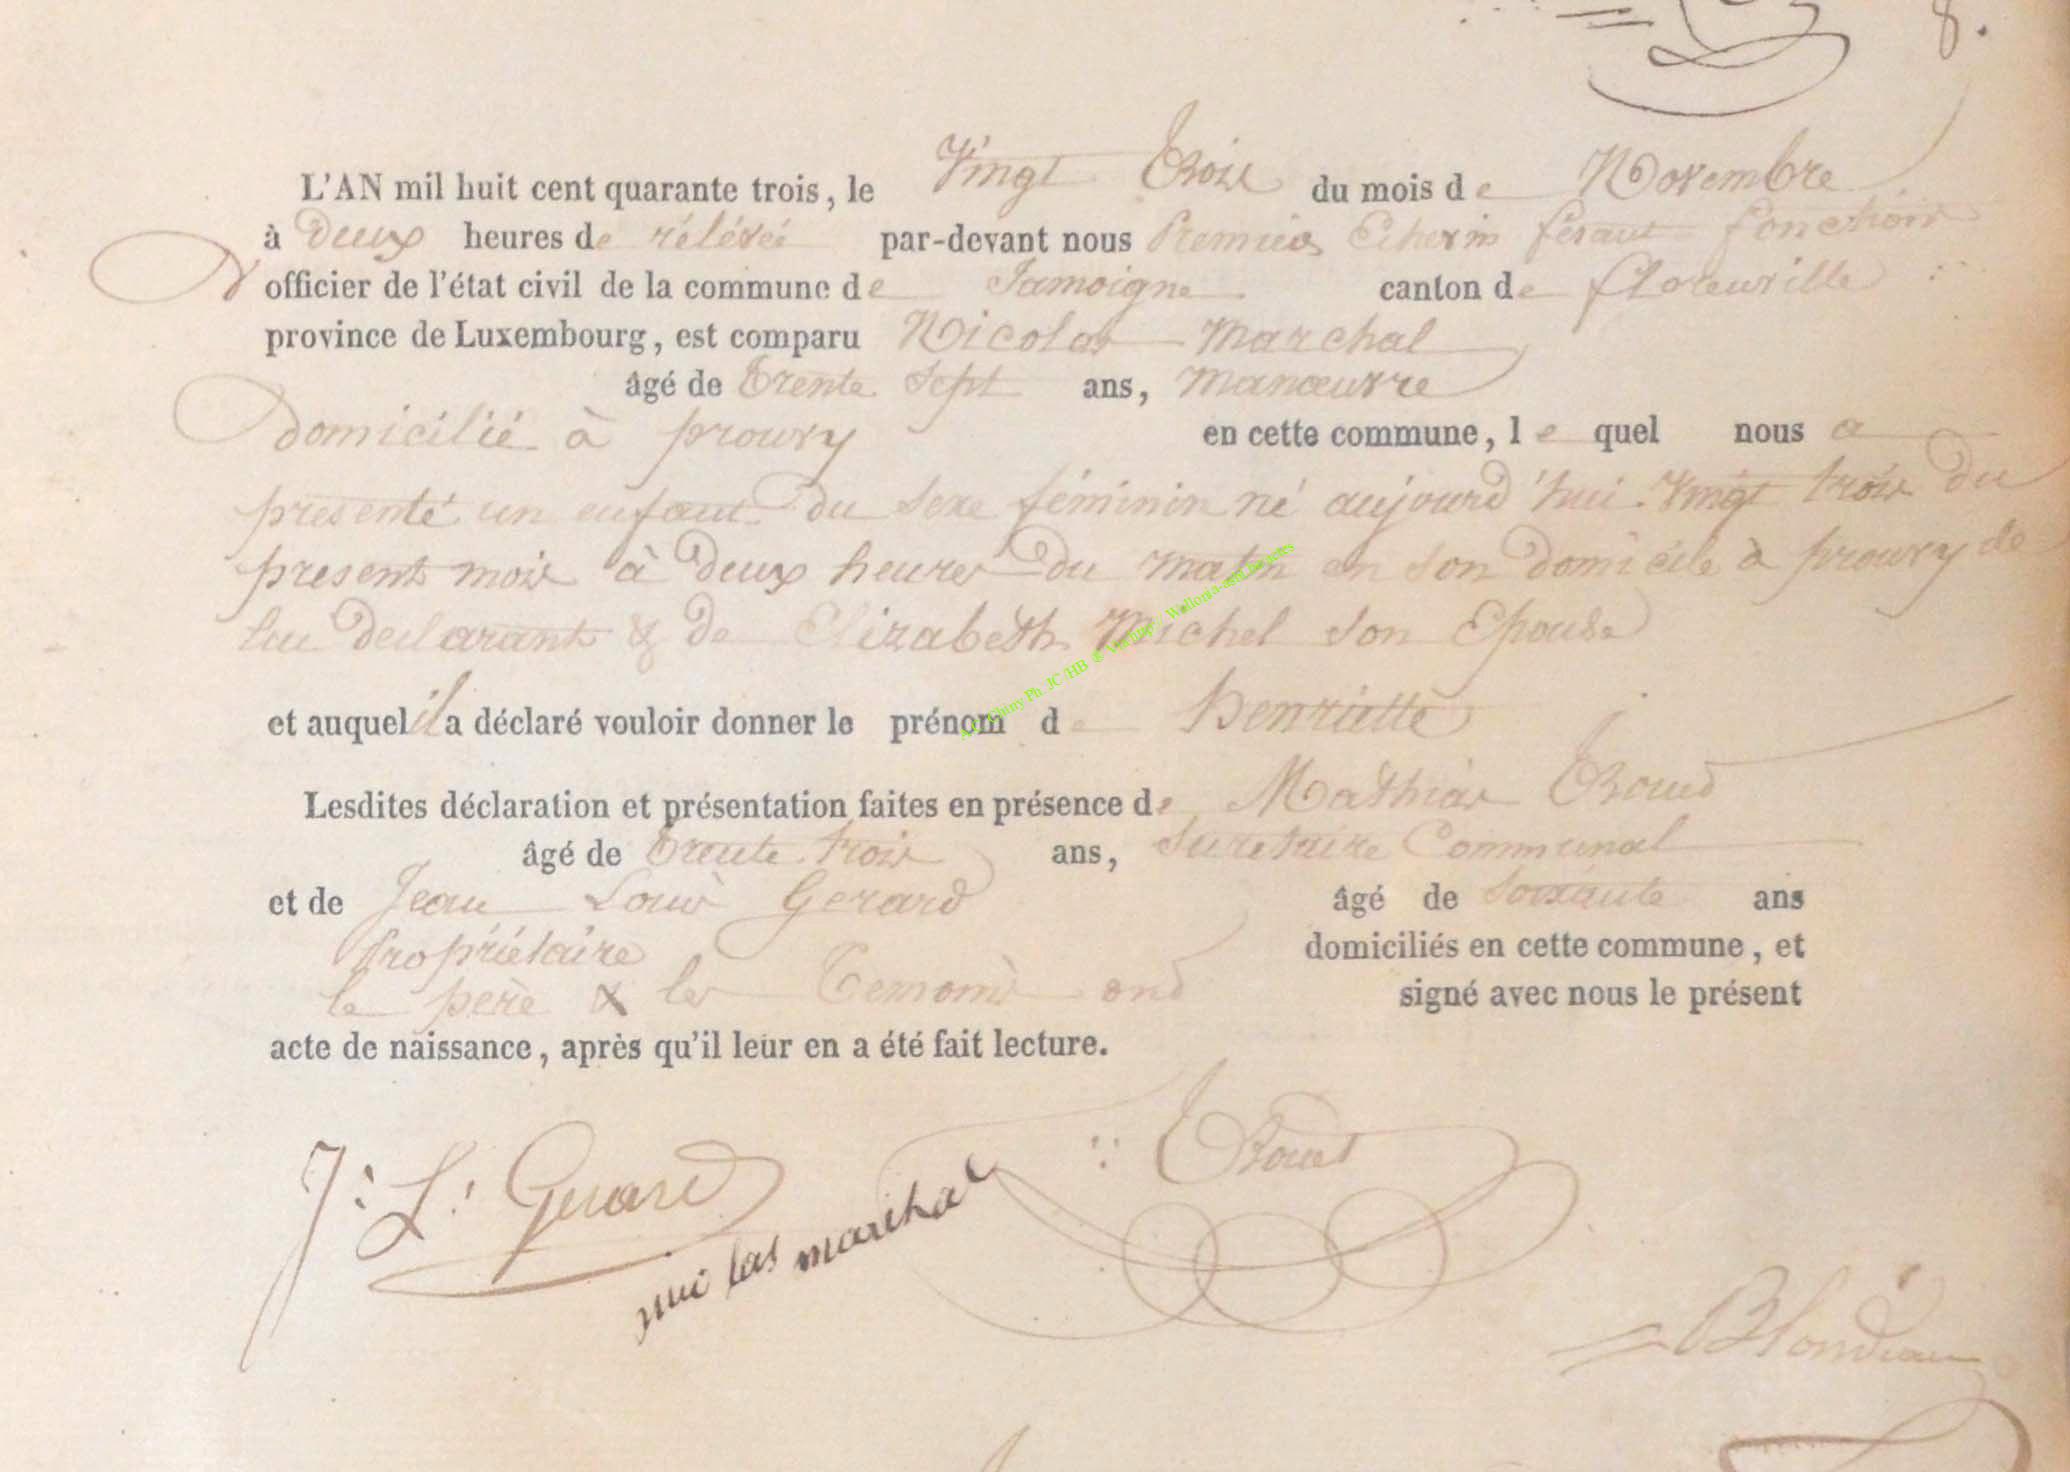 8.
L'AN mil huit cent quarante trois, le Vingt Trois du mois de Novembre
à Deux heures de rélévéé par-devant nous Premier Echevin fesant fonctions
D'officier de l'état civil de la commune de Jamoigne canton de florenville
province de Luxembourg, est comparu Nicolas Marchal
âgé de Trente Sept ans, Manœuvre
Domicilié à prouvy en cette commune, le quel nous a
présenté un enfant Du Sexe féminin né aujourd'hui Vingt trois Du
present mois à Deux heures Du Matin en son Domicile à prouvy de
lui Declarant & De Elizabeth Michel Son Epouse
et auquel il a déclaré vouloir donner le prénom de Henriette
Lesdites déclaration et présentation faites en présence de Mathias
âgé de Trente trois ans, Secretaire Communal
et de Jean Louis Gerard âgé de Soixante ans
Propriétaire domiciliés en cette commune, et
le père & les Temoins ont signé avec nous le présent
acte de naissance, après qu'il leur en a été fait lecture.
J. L. Gerard
nicolas marchal
Blondeau